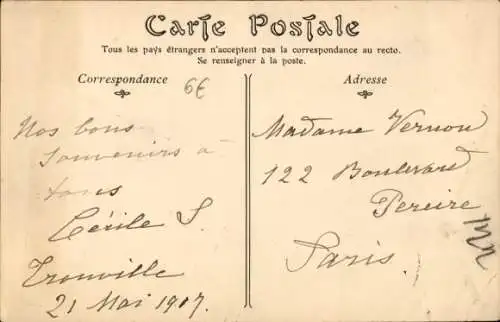 Carte Postale
Tous les pays étrangers n'acceptent pas la correspondance au recto.
Se renseigner à la poste.
Correspondance
6€
Adresse
Nos bons
souvenirs à
tous
Cécile S.
Trouville
21 Mai 1907.
Madame Vernon
122 Boulevard
Pereire
Paris.